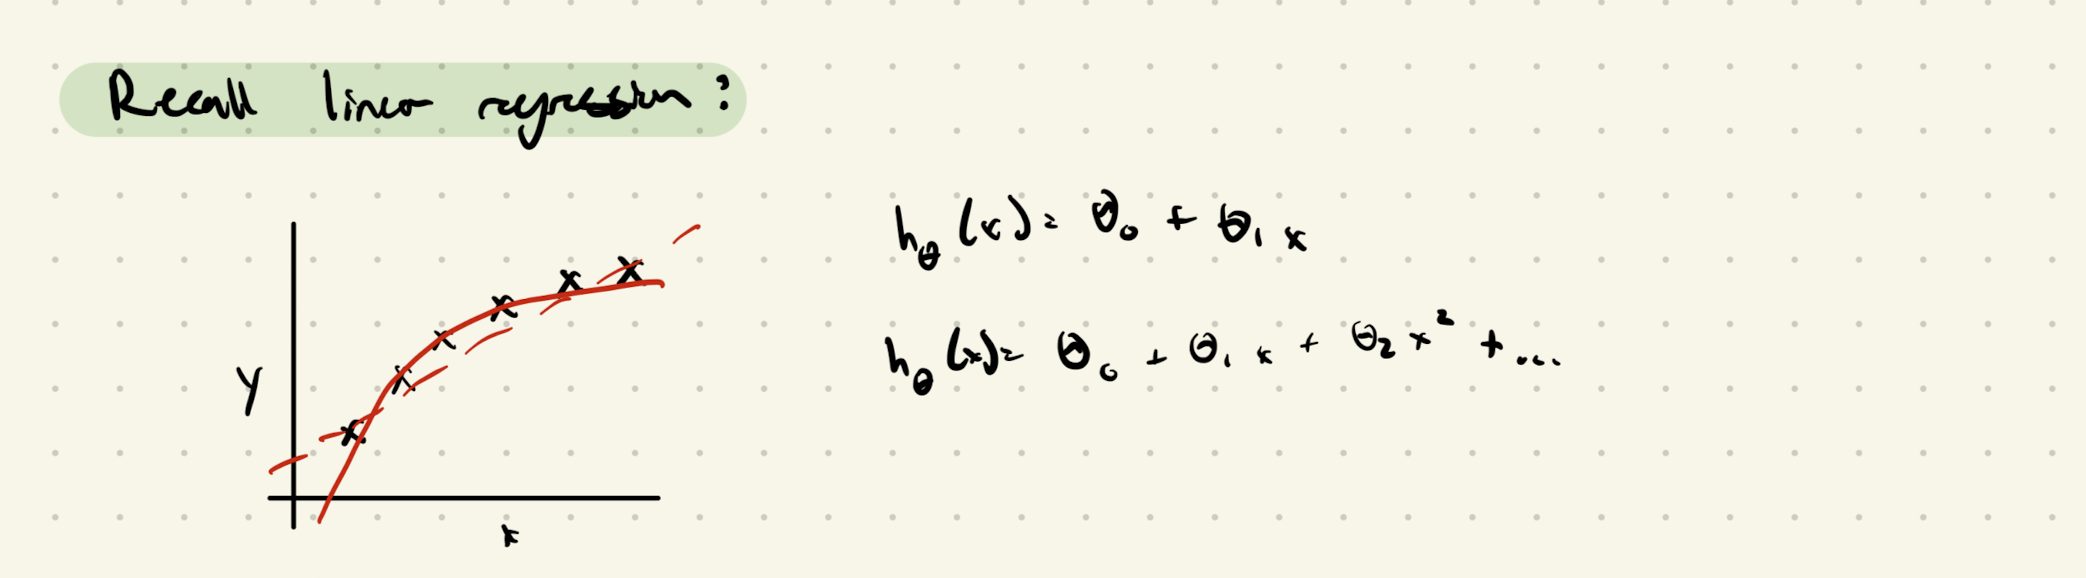 Recall linear regression:
h_θ(x) = θ₀ + θ₁ x
h_θ(x) = θ₀ + θ₁ x + θ₂ x² + ...
y
x